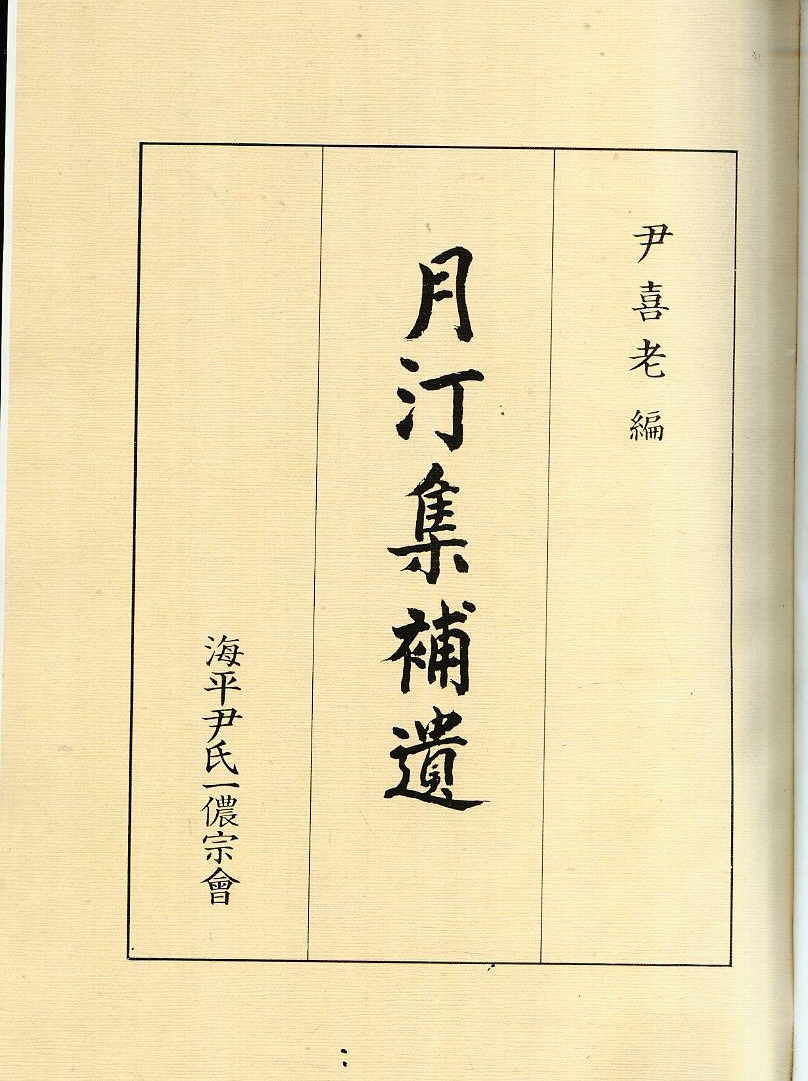 尹喜老編
月汀集補遺
海平尹氏一儂宗會